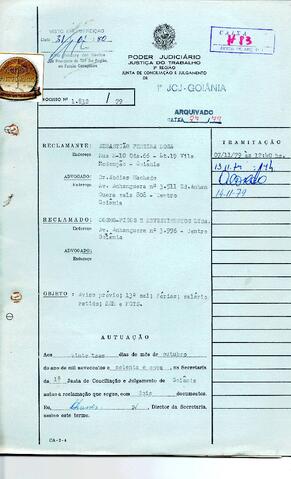 VISTO EM INSPEÇÃO
Data 31/ /80
CAIXA
Nº 83
PODER JUDICIÁRIO
JUSTIÇA DO TRABALHO
3ª REGIÃO
JUNTA DE CONCILIAÇÃO E JULGAMENTO
DE
1ª JCJ-GOIÂNIA
PROCESSO Nº 1.812 / 79
ARQUIVADO
CAIXA
RECLAMANTE: SEBASTIÃO PEREIRA
Endereço Rua M-10 Qda.66 - Lt.19 Vila
Redenção - Goiânia
ADVOGADO: Dr. Abdias Machado
Endereço Av. Anhanguera nº 3.511 Ed. Anhan
Guera sala 806 - Centro
Goiânia
RECLAMADO: PISOS E REVESTIMENTOS LTDA.
Endereço Av. Anhanguera nº 3.996 - Centro
Goiânia
ADVOGADO:
Endereço
TRAMITAÇÃO
07/11/79 às
13.11.79
14-11-79
OBJETO: Aviso prévio; 13º sal; férias; salário
retido; e FGTS.
AUTUAÇÃO
Aos vinte tres dias do mês de outubro
do ano de mil novecentos e setenta e nove, na Secretaria
da 1ª Junta de Conciliação e Julgamento de Goiânia
autuo a reclamação que segue, com dois documentos.
Eu, Diretor da Secretaria,
assino este termo.
CA-2-4